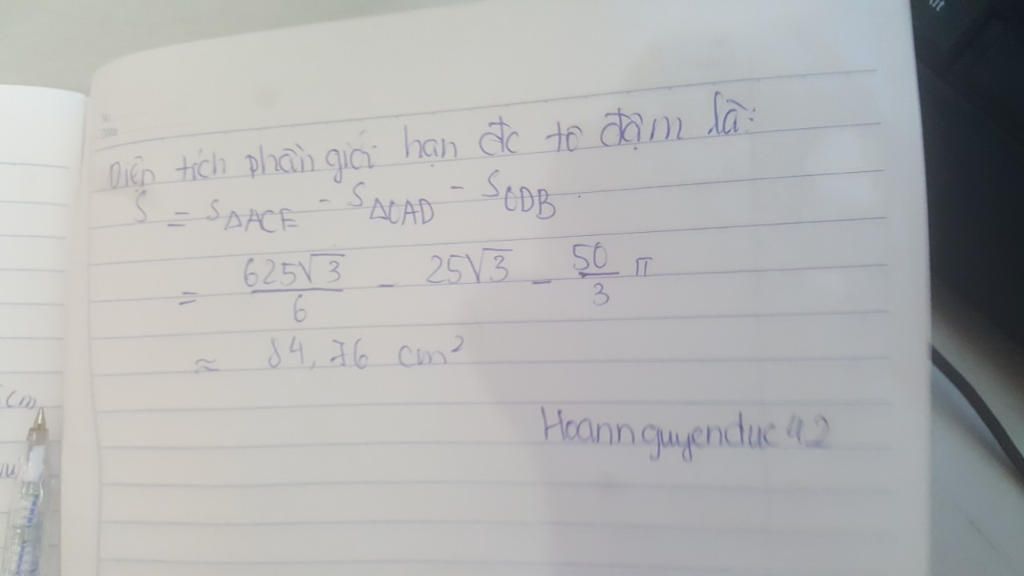 Diện tích phần giới hạn đc tô đậm là:
S = S∆ACE - S∆CAD - SCDB.
= 625√3/6 - 25√3 - 50/3 π
≈ 84,76 cm²
cm
Hoannguyenduc42